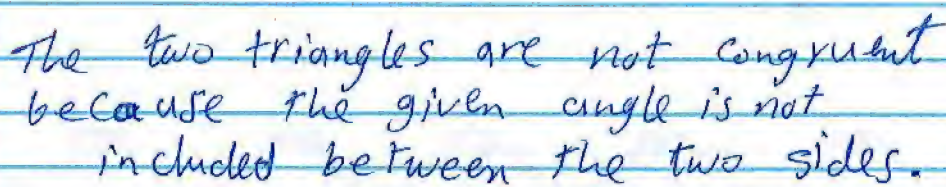 The two triangles are not congruent
because the given angle is not
included between the two sides.